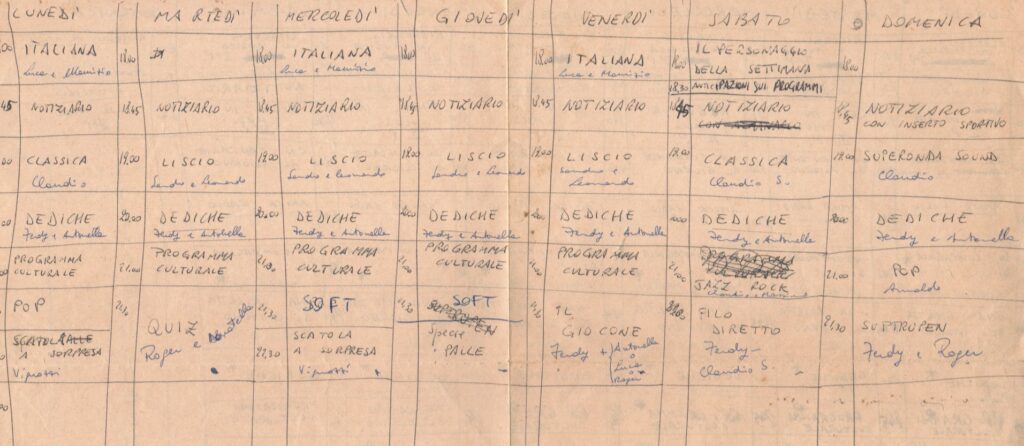 LUNEDÌ MARTEDÌ MERCOLEDÌ GIOVEDÌ VENERDÌ SABATO DOMENICA
ITALIANA
Luca e Maurizio
18.00
18.00 ITALIANA
Luca e Maurizio
18.00
18.00 ITALIANA
Luca e Maurizio
18.00 IL PERSONAGGIO
DELLA SETTIMANA
18.30 ANTICIPAZIONI SUI PROGRAMMI
18.00
45 NOTIZIARIO
18.45 NOTIZIARIO
18.45 NOTIZIARIO
18.45 NOTIZIARIO
18.45 NOTIZIARIO
NOTIZIARIO
18.45 NOTIZIARIO
CON INSERTO SPORTIVO
00 CLASSICA
Claudio
19.00 LISCIO
Sandro e Leonardo
19.00 LISCIO
Sandro e Leonardo
19.00 LISCIO
Sandro e Leonardo
19.00 LISCIO
Sandro e
Leonardo
19.00 CLASSICA
Claudio S.
19.00 SUPERONDA SOUND
Claudio
DEDICHE
Ferdy e Antonella
20.00 DEDICHE
Ferdy e Antonella
20.00 DEDICHE
Ferdy e Antonella
20.00 DEDICHE
Ferdy e Antonella
20.00 DEDICHE
Ferdy e Antonella
20.00 DEDICHE
Ferdy e Antonella
20.00 DEDICHE
Ferdy e Antonella
PROGRAMMA
CULTURALE
21.00 PROGRAMMA
CULTURALE
PROGRAMMA
CULTURALE
21.00 PROGRAMMA
CULTURALE
21.00 PROGRAMMA
CULTURALE
21.00
JAZZ ROCK
21.00 POP
Arnaldo
POP
A SORPRESA
Vignozzi
21.30 QUIZ
Roger e Donatella
21.30 SOFT
22.30 SCATOLA
A SORPRESA
Vignozzi
21.30 SOFT
PALLE
21.30 IL
GIOCONE
Ferdy + Antonella
o
Luca
o
Roger
FILO
DIRETTO
Ferdy -
Claudio S.
21.30
Ferdy e Roger